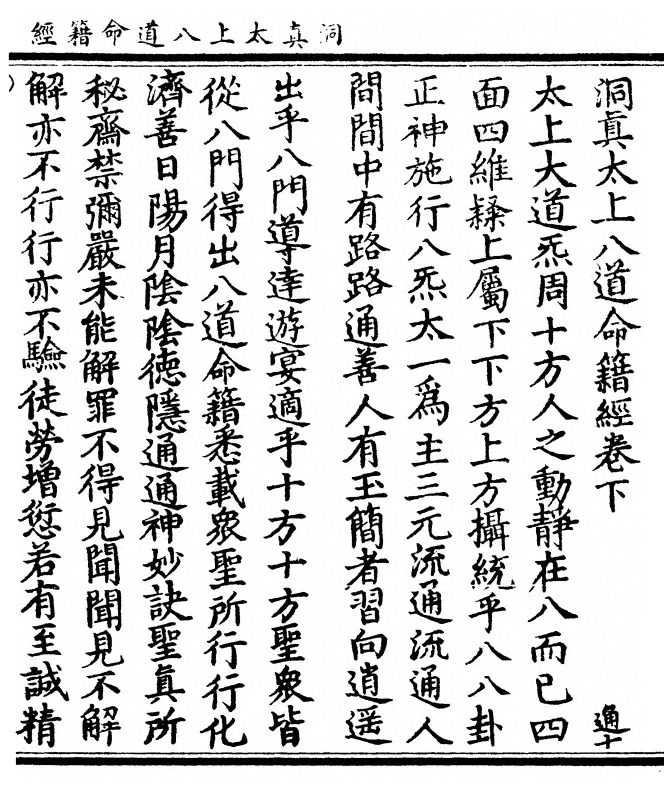 洞真太上八道命籍經
洞真太上八道命籍經卷下 通十
太上大道炁周十方人之動靜在八而已四
面四維𨽻上屬下下方上方攝統乎八八卦
正神施行八炁太一為主三元流通流通人
間間中有路路通善人有玉簡者習向逍遥
出乎八門導達遊宴適乎十方十方聖衆皆
從八門得出八道命籍悉載衆聖所行行化
濟善日陽月陰陰德隱通通神妙訣聖真所
秘齋禁彌嚴未能解罪不得見聞聞見不解
解亦不行行亦不驗徒勞增愆若有至誠精